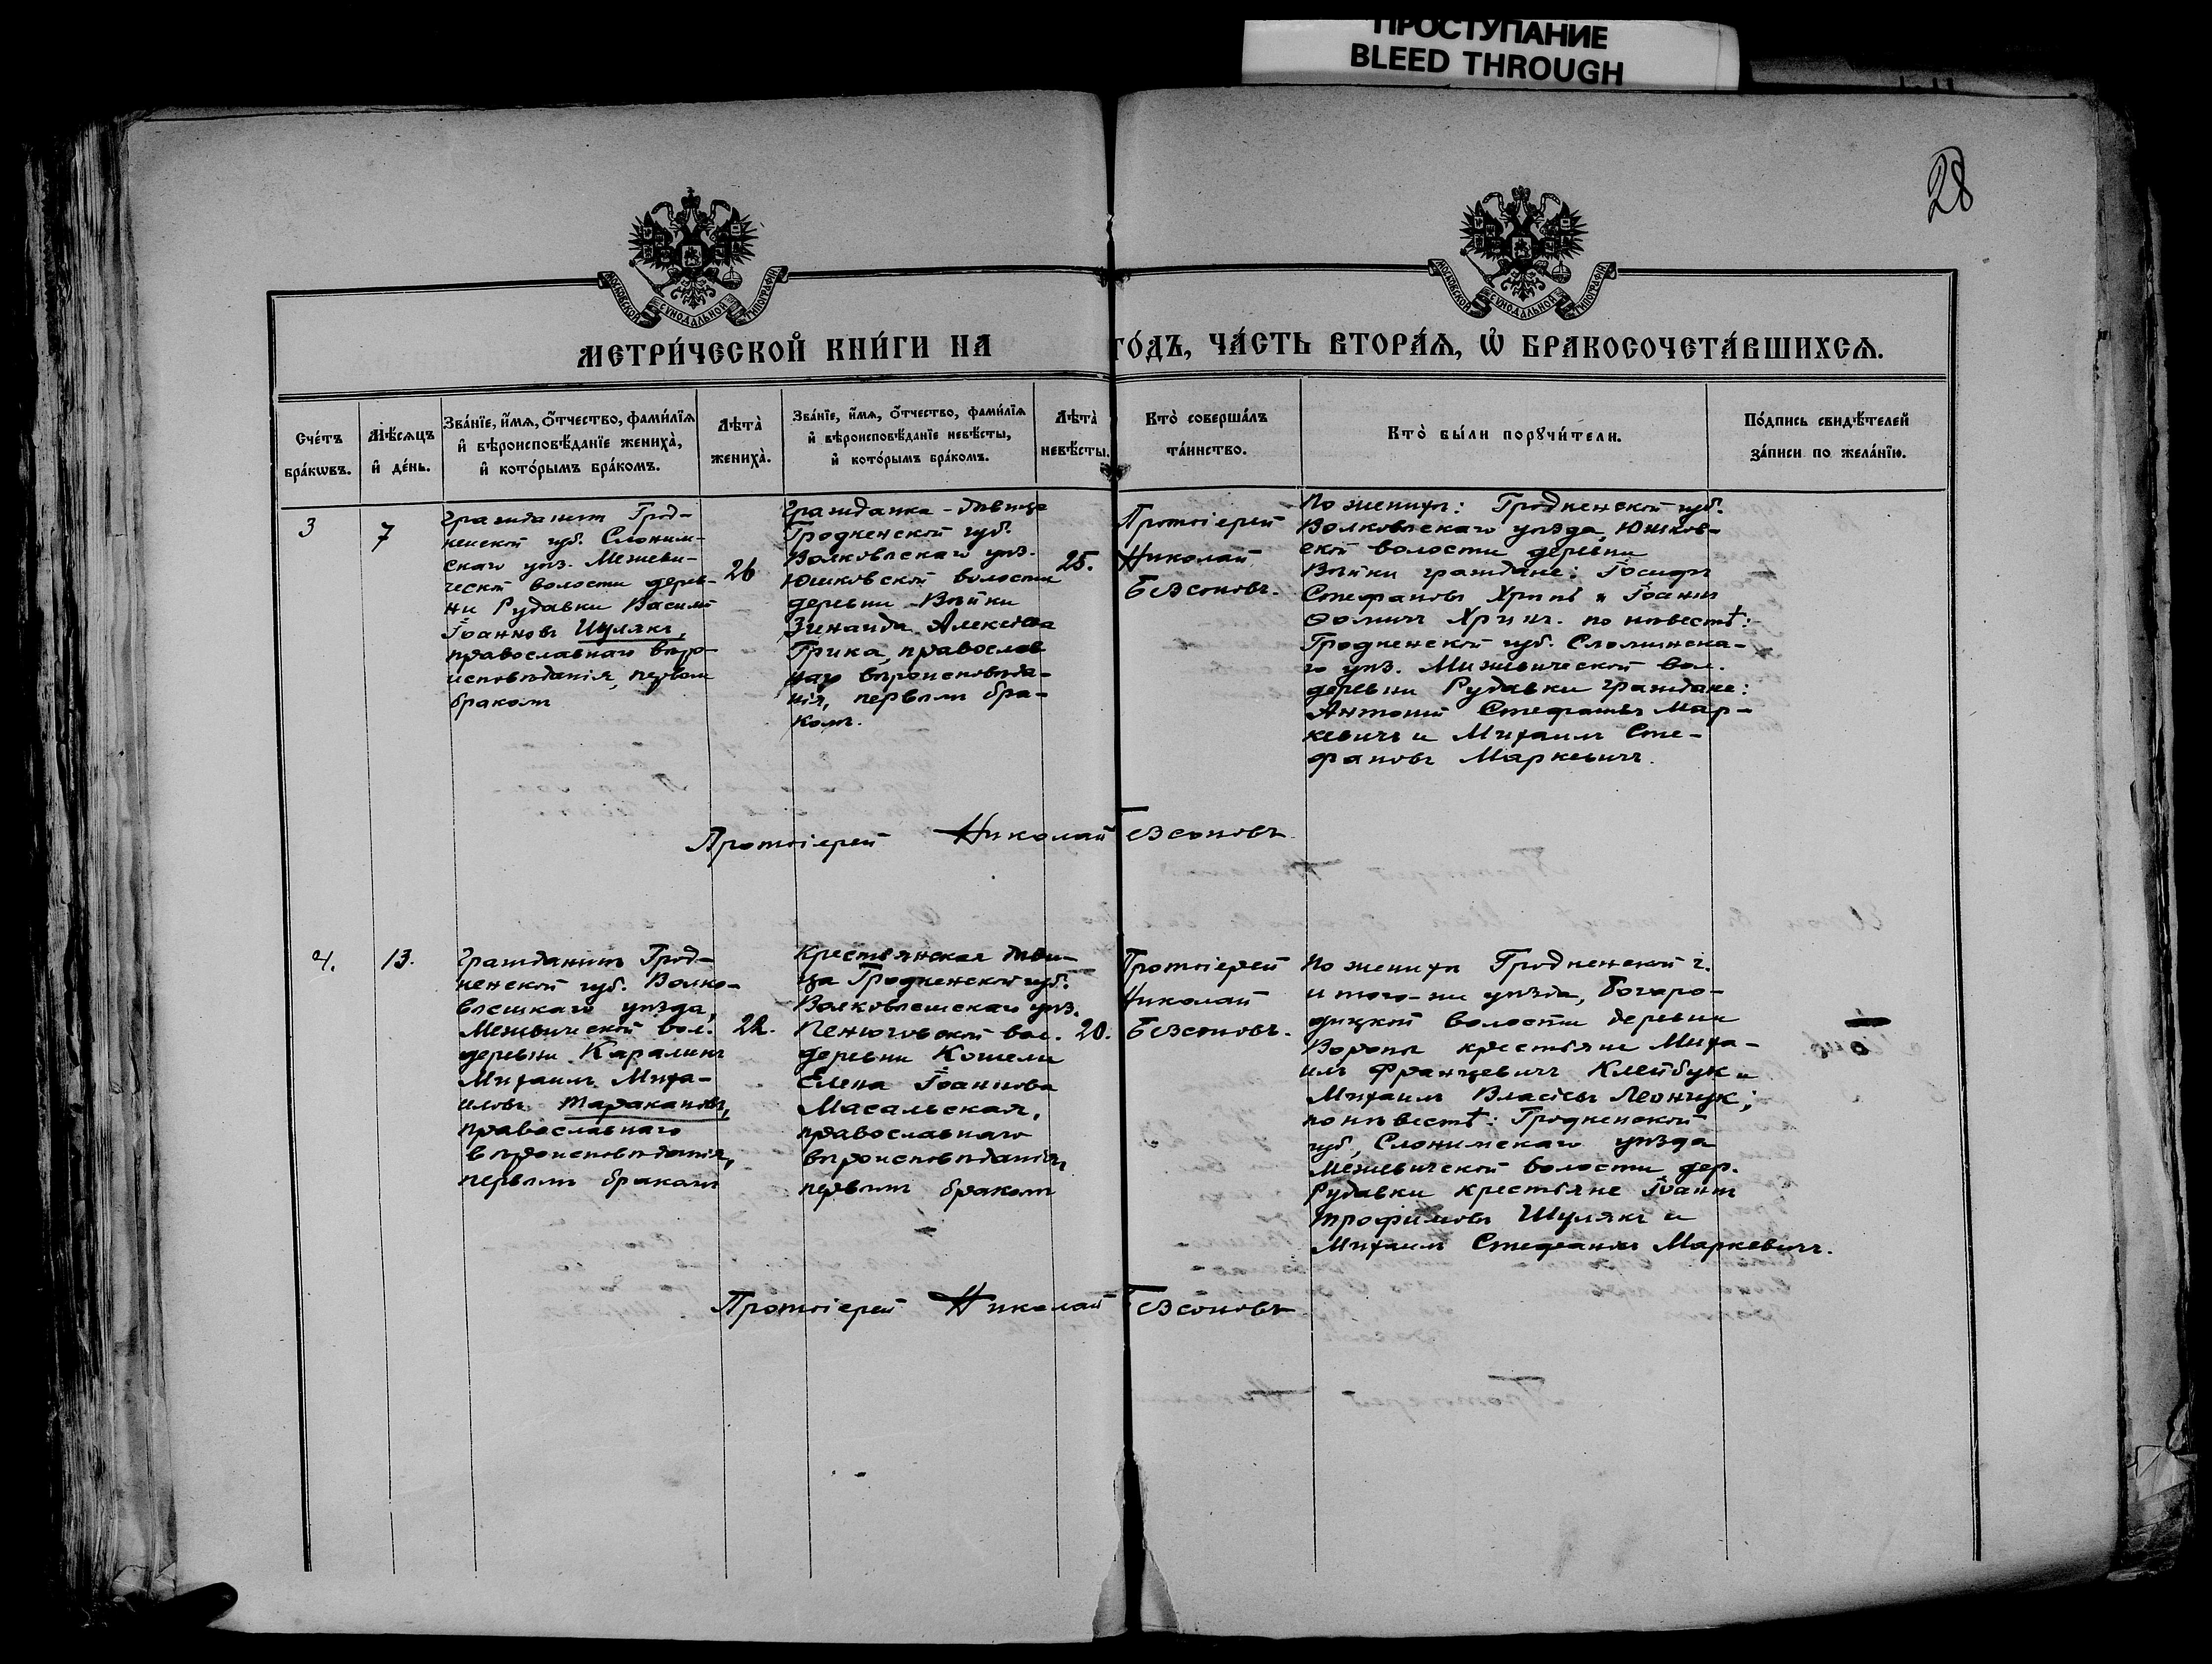 ПРОСТУПАНИЕ
BLEED THROUGH
28
МОСКОВСКОЙ СѴНОДАЛЬНОЙ ТИПОГРАФІИ
МОСКОВСКОЙ СѴНОДАЛЬНОЙ ТИПОГРАФІИ
МЕТРИ́ЧЕСКОЙ КНИ́ГИ НА ГО́ДЪ, ЧА́СТЬ ВТОРА́Ѧ, Ѡ҆ БРАКОСОЧЕТА́ВШИХСѦ.
Сче́тъ
бра́кѡвъ.
Мѣ́сѧцъ
и҆ де́нь.
Зва́нїе, и҆́мѧ, ѻ҆́тчество, фами́лїѧ
и҆ вѣроисповѣ́данїе жениха̀,
и҆ кото́рымъ бра́комъ.
Лѣта̀
жениха̀.
Зва́нїе, и҆́мѧ, ѻ҆́тчество, фами́лїѧ
и҆ вѣроисповѣ́данїе невѣ́сты,
и҆ кото́рымъ бра́комъ.
Лѣта̀
невѣ́сты.
Кто̀ соверша́лъ
та́инство.
Кто̀ бы́ли порꙋчи́тели.
По́дпись свидѣ́телей
за́писи по жела́нїю.
3
7
Гражданинъ Грод-
ненской губ. Слоним-
скаго уѣз. Межеви-
ческой волости дерев-
ни Рудавки Василій
Іоанновъ Шулякъ,
православнаго вѣро-
исповѣданія, первымъ
бракомъ
26
Гражданка - дѣвица
Гродненской губ.
Волковскаго уѣз.
Юшковской волости
деревни Войки
Зинаида Алексѣева
Грика, православ
наго вѣроисповѣда-
нія, первымъ бра-
комъ.
25.
Протоіерей
Николай
Безсоновъ.
По женихѣ: Гродненской губ.
Волковскаго уѣзда Юшков-
ской волости деревни
Войки граждане: Іосифъ
Стефановъ и Іоаннъ
Ѳоминъ по невестѣ:
Гродненской губ. Слонимска-
го уѣз. Межевической вол.
деревни Рудавки граждане:
Антоній Стефановъ Мар-
кевичъ и Михаилъ Сте-
фановъ Маркевичъ.
Протоіерей Николай Безсоновъ
4.
13.
Гражданинъ Грод-
ненской губ. Волко-
вскаго уѣзда,
Межевической вол.
деревни Каралинъ
Михаилъ Миха-
иловъ Таракановъ,
православнаго
вѣроисповѣданія,
первымъ бракомъ
22.
Крестьянская дѣви-
ца Гродненской губ.
Волковскаго уѣз.
Пенюговской вол.
деревни Кошели
Елена Іоаннова
Масальская,
православнаго
вѣроисповѣданія,
первымъ бракомъ
20.
Протоіерей
Николай
Безсоновъ.
По женихѣ Гродненской г.
и того-же уѣзда, Богоро-
дицкой волости деревни
Вороны крестьяне Миха-
илъ Францевичъ Клейбук и
Михаилъ Власіевъ Леончук;
по невестѣ: Гродненской
губ., Слонимскаго уѣзда
Межевической волости дер.
Рудавки крестьяне Іоаннъ
Трофимовъ Шулякъ и
Михаилъ Стефановъ Маркевичъ.
Протоіерей Николай Безсоновъ